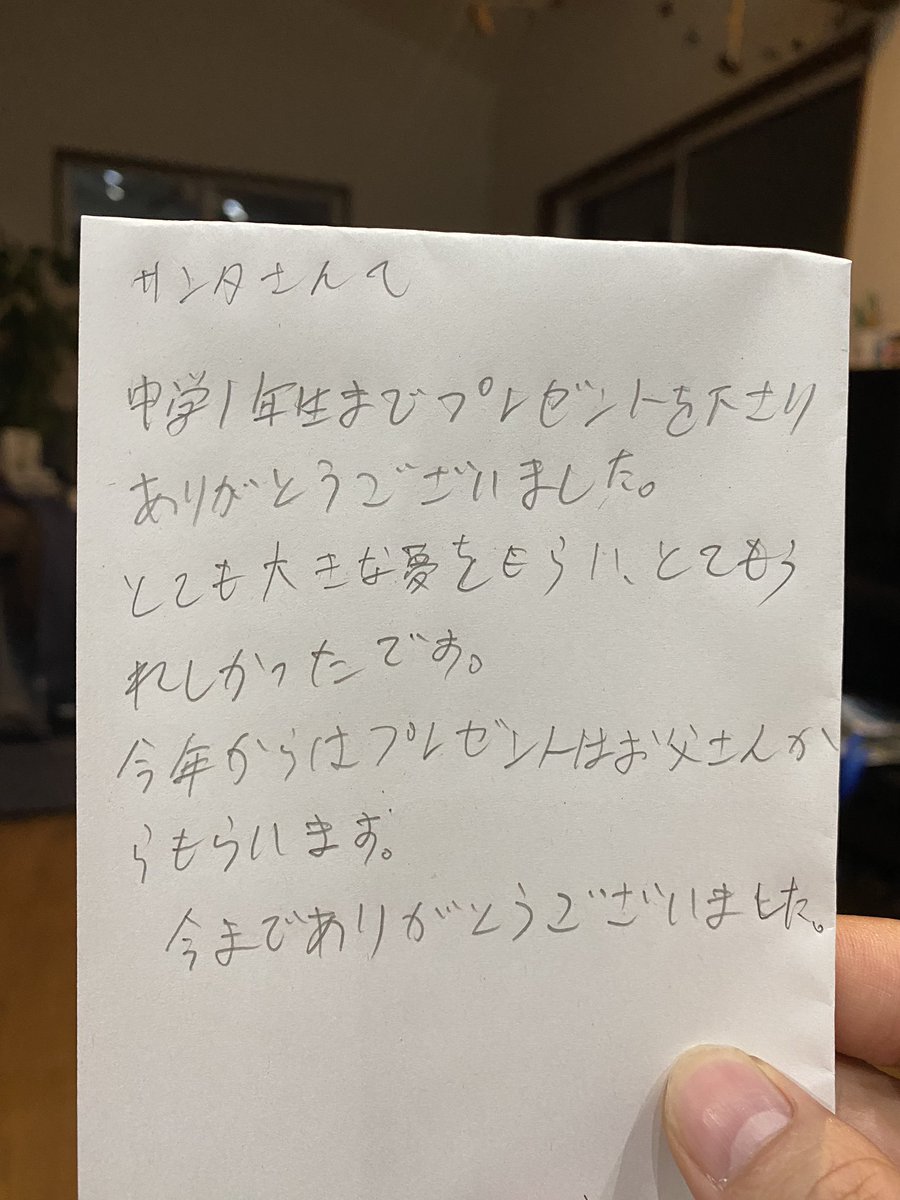 サンタさんへ
中学1年生までプレゼントを下さり
ありがとうございました。
とても大きな夢をもらい、とてもう
れしかったです。
今年からはプレゼントはお父さんか
らもらいます。
今までありがとうございました。